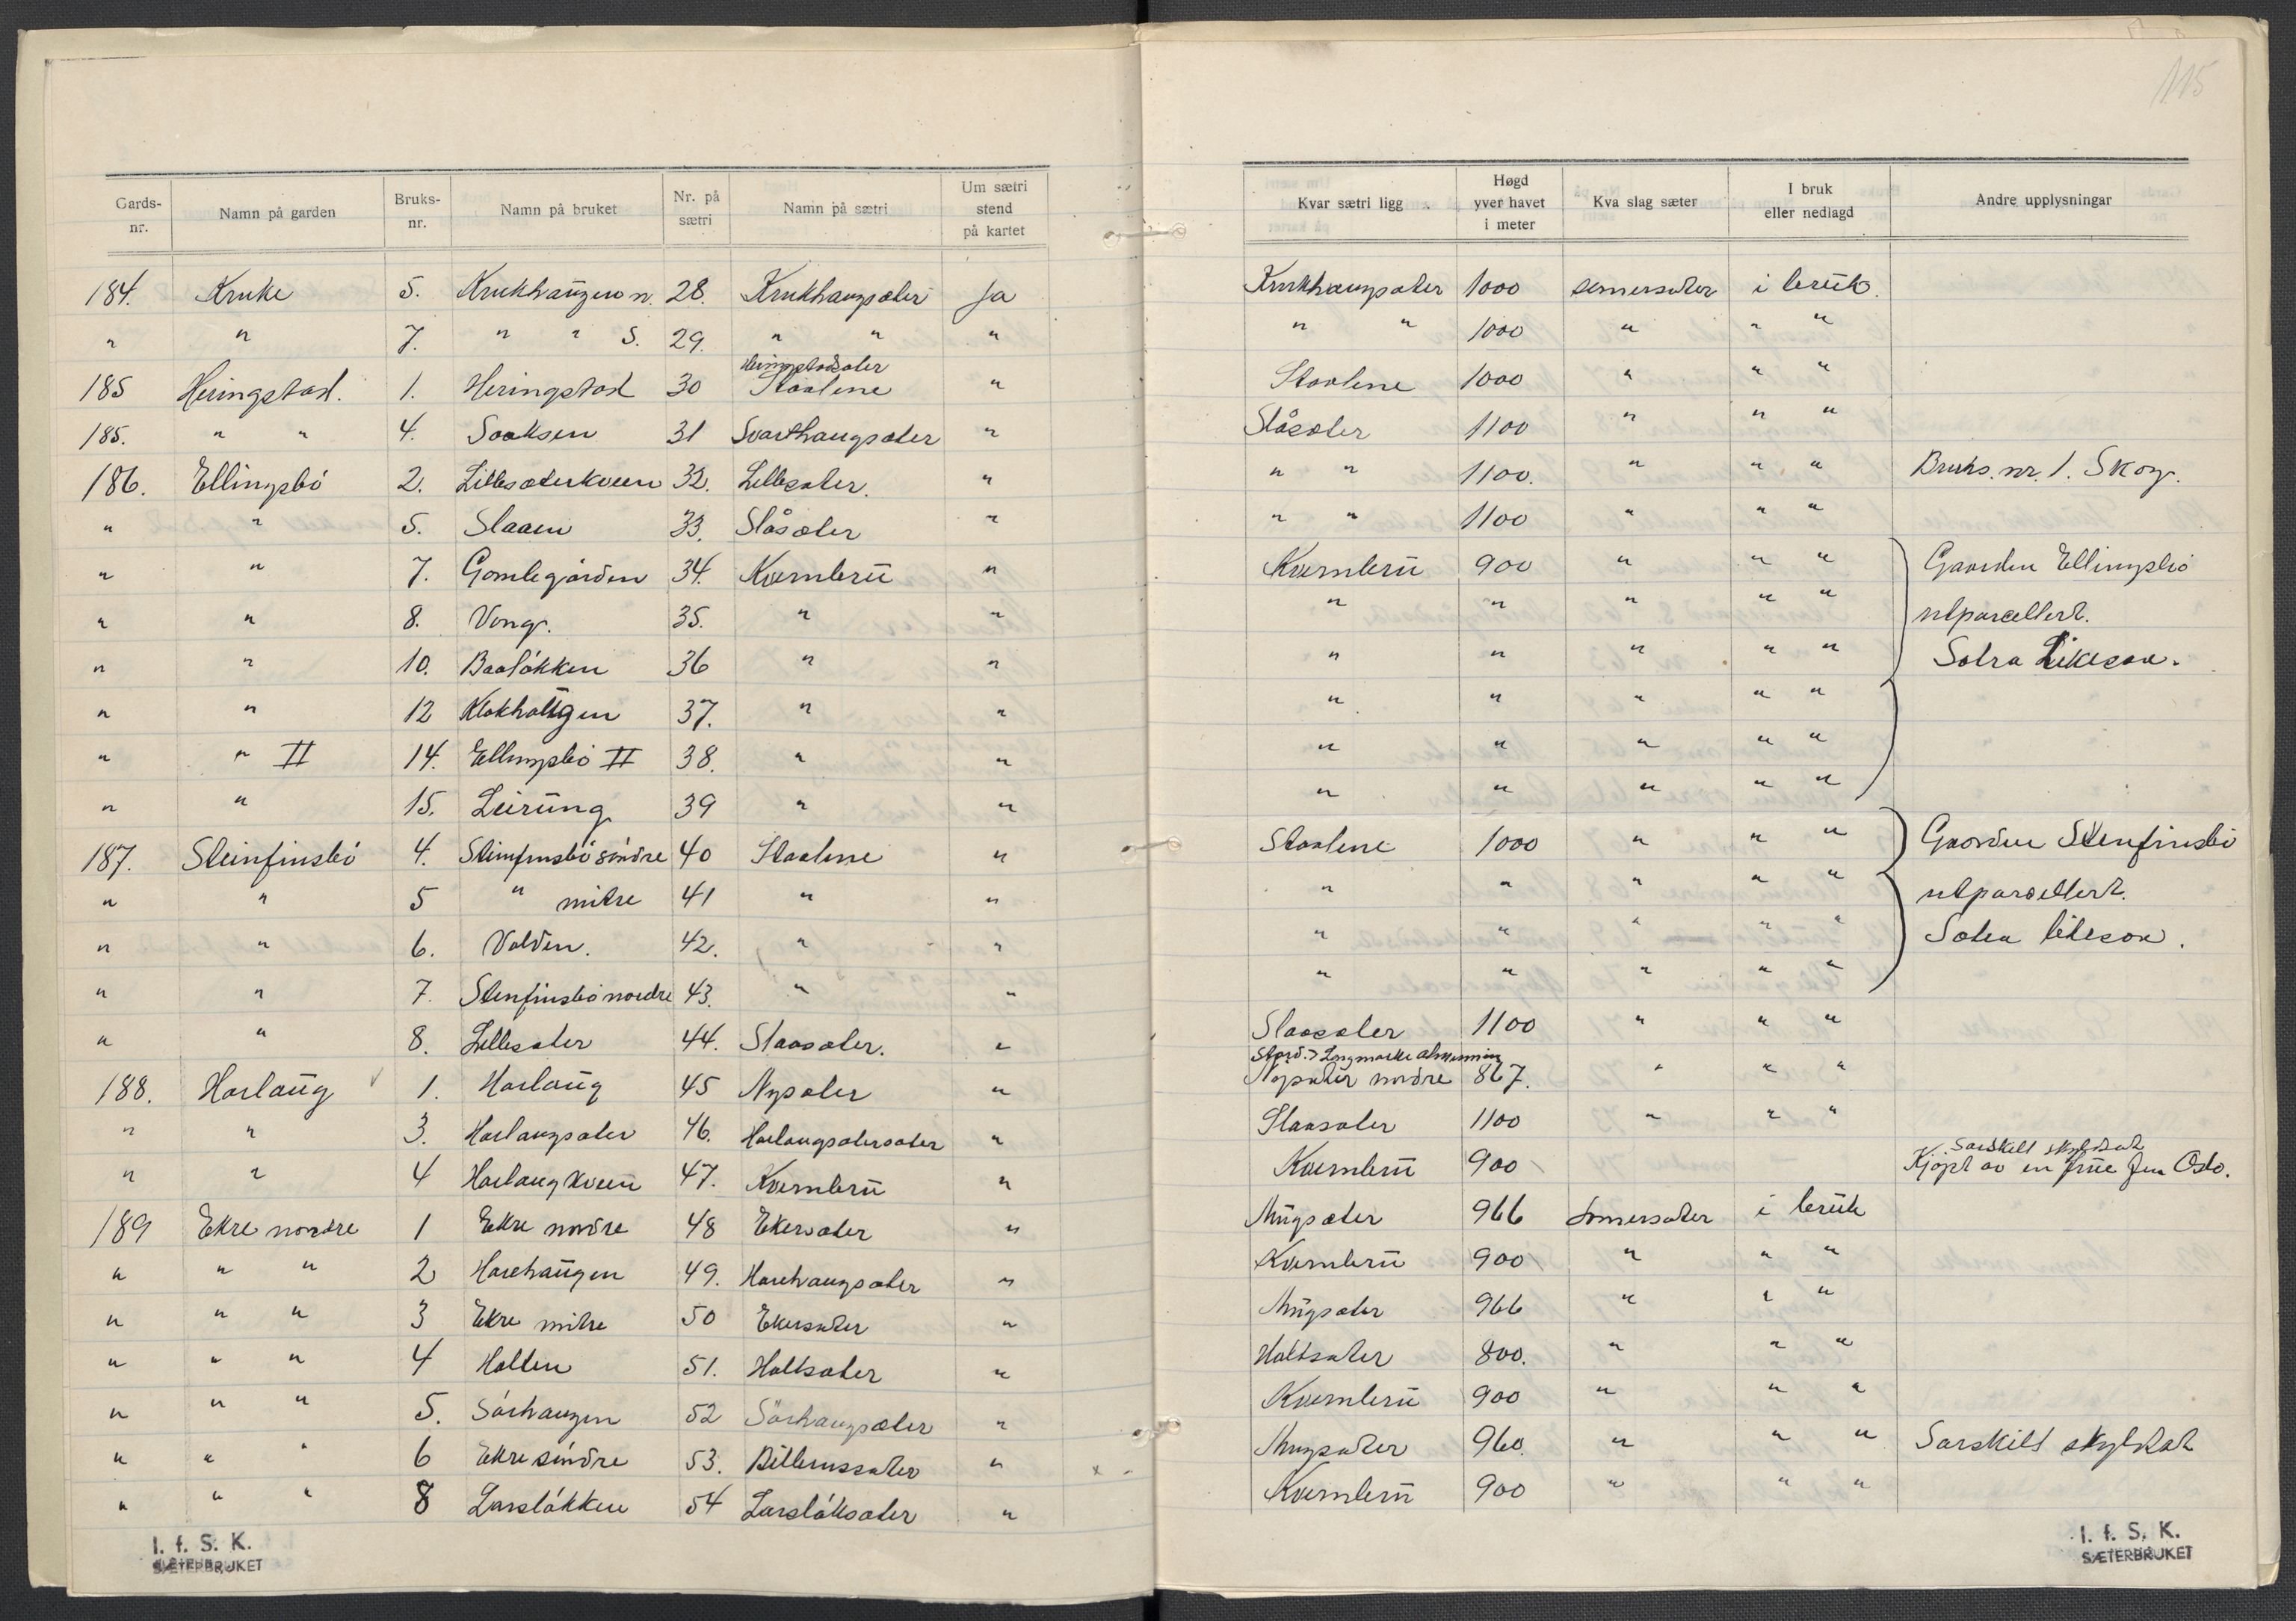 115
Gards-nr. Namn på garden Bruks-nr. Namn på bruket Nr. på sætri Namn på sætri Um sætri stend på kartet
184. Kruke 5. Krukhaugen n. 28. Krukhaugsæter Ja
" " 7. " " S. 29. " " "
Heringstadsæter
185 Heringstad. 1. Heringstad 30 Staalene "
185. " " 4. 31 Svarthaugsæter "
186. Ellingsbö 2. Lillesæterkveen 32. Lillesæter. "
" " 5. Slaaen 33. Slåsæter "
" " 7. Gamlegården 34. Kvernbrü "
" " 8. Vang. 35. " "
" " 10. Baalökken 36 " "
" " 12 37. " "
" " II 14. Ellingsbö II 38. " "
" " 15. Leirüng 39 " "
187. Steinfinsbö 4. Steinfinsbö söndre 40 Staalene "
" " 5 " mitre 41 " "
" " 6. Volden. 42. " "
" " 7. Stenfinsbö nordre 43. " "
" " 8. Lillesæter 44. Slaasæter. "
188. Harlaüg 1. Harlaüg 45 Nysæter "
" " 3. Harlaugsæter 46. Harlaugsætersæter "
" " 4 Harlaugkveen 47. Kvernbrü "
189 Ekre nordre 1 Ekre nordre 48 Ekersæter "
" " " 2 Harehaügen 49. Harehaugsæter "
" " " 3 Ekre mitre 50 Ekersæter "
" " " 4 Holten 51. Holtsæter "
" " " 5. Sörhaugen 52 Sörhaugsæter "
" " " 6 Ekre söndre 53. "
" " " 8 Larslökken 54 Larslöksæter "
I. f. S. K.
SÆTERBRUKET
Kvar sætri ligg Høgd yver havet i meter Kva slag sæter I bruk eller nedlagd Andre upplysningar
Krukhaugsæter 1000 somersæter i brük.
" " 1000 " " "
Staalene 1000 " " "
Slåsæter 1100 " " "
" " 1100. " " " Bruks. nr. 1. Skog.
" " 1100 " " "
Kvernbrü 900 " " " Gaarden Ellingsbö
" " " " " utparcellert.
" " " " " Sætra likeså.
" " " " "
" " " " "
" " " " "
Staalene 1000 " " " Gaarden Stenfinsbö
" " " " " utparcellert.
" " " " " Sætra likesaa.
" " " " "
Slaasæter 1100 " " "
Nysæter nordre 867. " " "
Slaasæter 1100 " " "
Særskilt skyldsat
Kvernbrü 900 Kjöpt av en frue fra Oslo.
Mügsæter 966 Somersæter i brük
Kvernbrü 900 " " "
Mügsæter 966 " " "
Holtsæter 800. " " "
Kvernbrü 900 " " "
Mugsæter 960. " " " Særskilt skyldsat
Kvernbrü 900 " " "
I. f. S. K.
SÆTERBRUKET